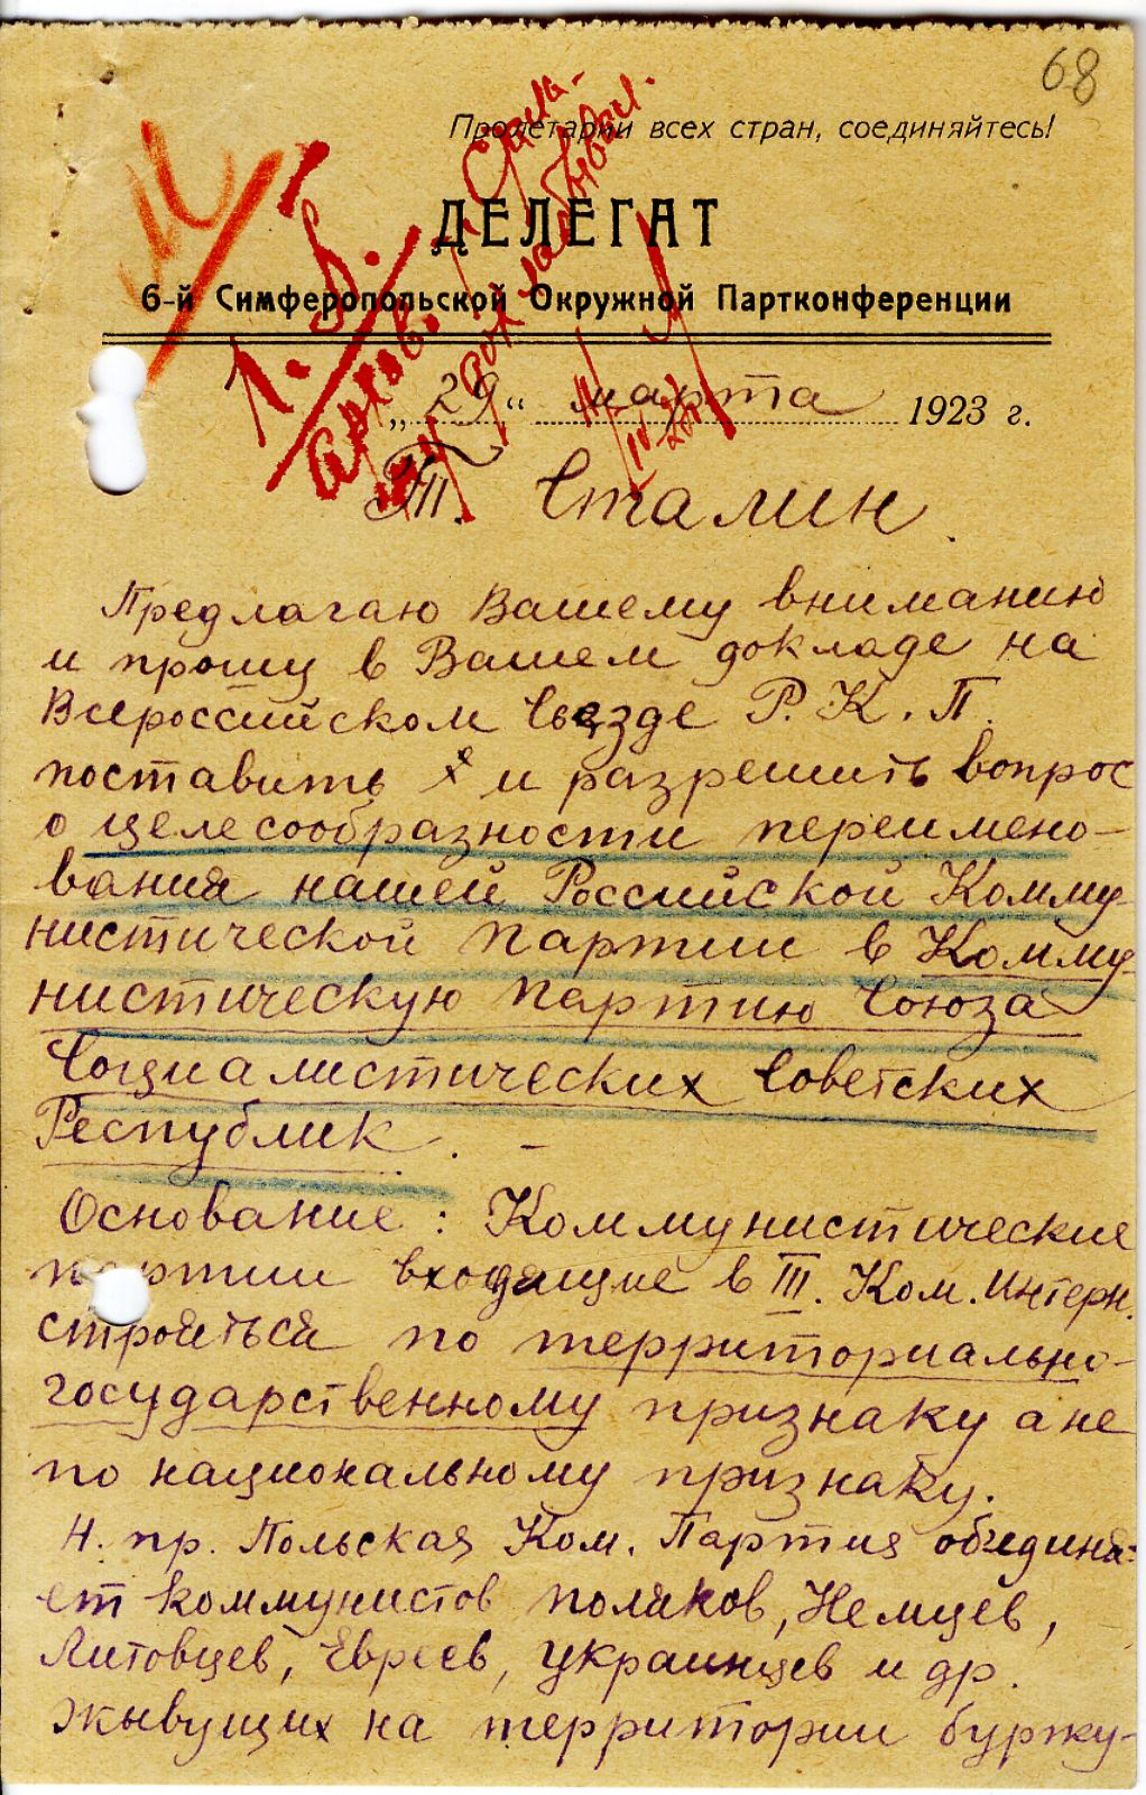 68
Пролетарии всех стран, соединяйтесь!
ДЕЛЕГАТ
6-й Симферопольской Окружной Партконференции
„29“ марта 1923 г.
Т. Сталин.
Предлагаю Вашему вниманию
и прошу в Вашем докладе на
Всероссийском Съезде Р. К. П.
поставить и разрешить вопрос
о целесообразности переимено-
вания нашей Российской Комму-
нистической партии в Комму-
нистическую партию Союза
Социалистических Советских
Республик. –
Основание: Коммунистические
партии входящие в III. Ком. Интерн.
строяться по территориально-
государственному признаку а не
по национальному признаку.
Н. пр. Польская Ком. Партия объединя-
ет коммунистов поляков, Немцев,
Литовцев, Евреев, украинцев и др.
жывущих на территории буржу-